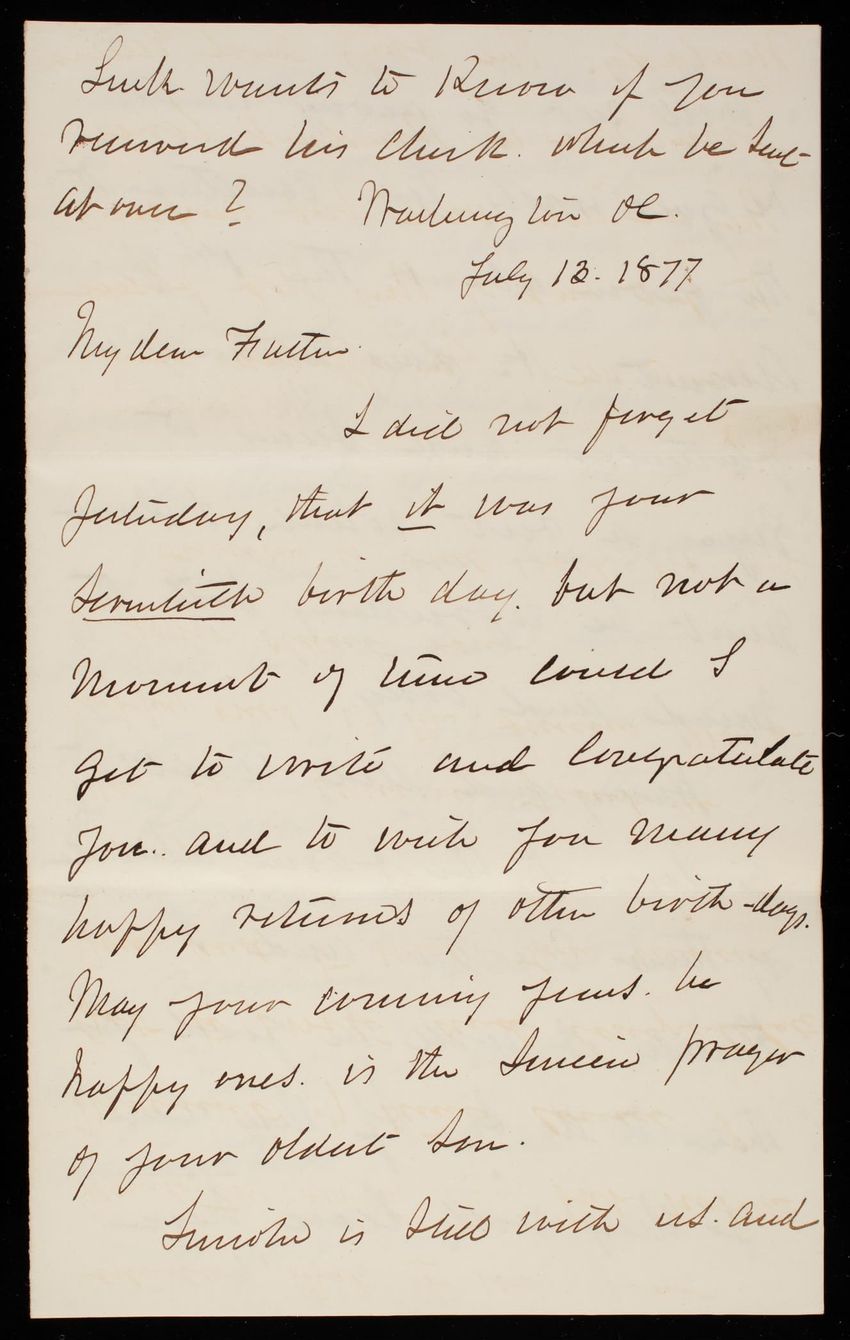 wants to know if you
received his check. which he sent
at once? Washington DC.
July 13. 1877
My dear Father.
I did not forget
yesterday, that it was your
seventieth birth day. but not a
moment of time could I
get to write and congratulate
you. and to wish you many
happy returns of other birth-days.
May your coming years. be
happy ones. is the sincere prayer
of your oldest son.
is still with us. and